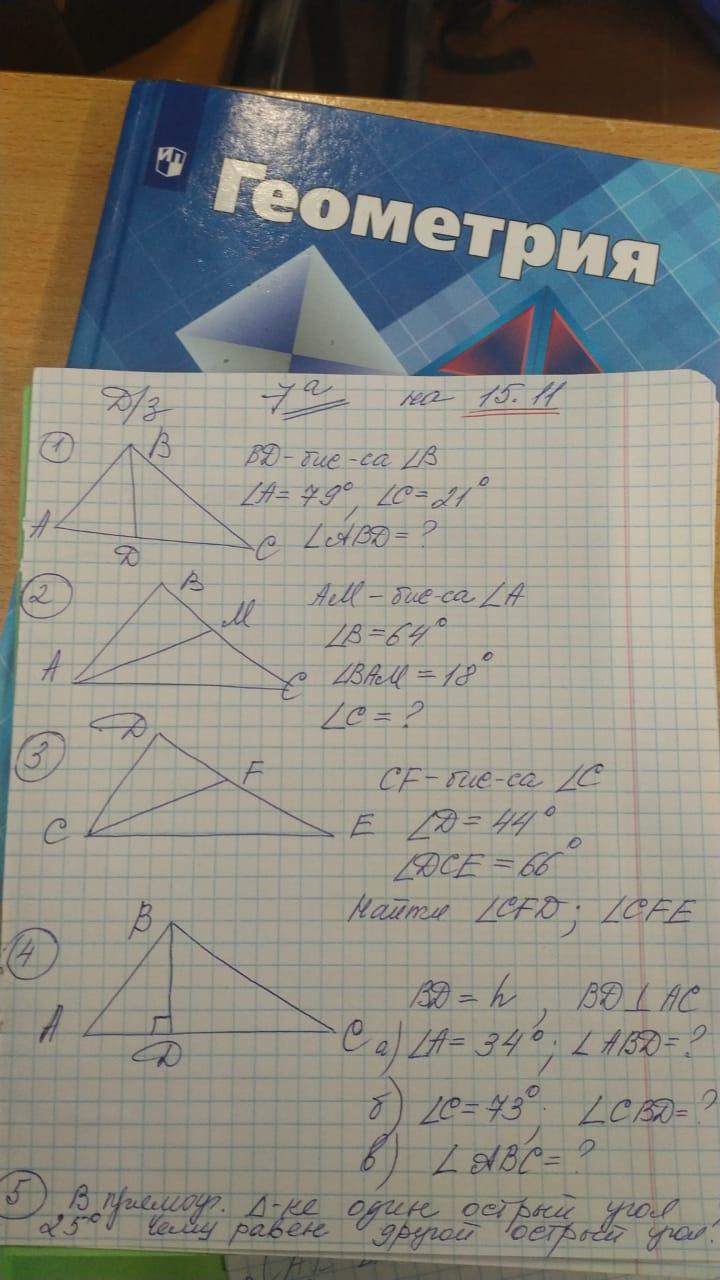 ИП
Геометрия
Д/з 7а на 15.11
1 B BD-бис-са ∠B
∠A = 79°, ∠C = 21°
A D C ∠ABD = ?
2 B AM - бис-са ∠A
M ∠B = 64°
A C ∠BAM = 18°
∠C = ?
3 D F CF - бис-са ∠C
C E ∠D = 44°
∠DCE = 66°
Найти ∠CFD; ∠CFE
4 B BD = h, BD ⊥ AC
A D C а) ∠A = 34°; ∠ABD = ?
б) ∠C = 73°; ∠CBD = ?
в) ∠ABC = ?
5 В прямоуг. Δ-ке один острый угол
25° чему равен другой острый угол?